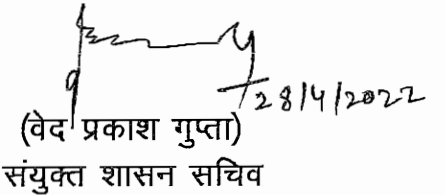 28/4/2022
(वेद प्रकाश गुप्ता)
संयुक्त शासन सचिव